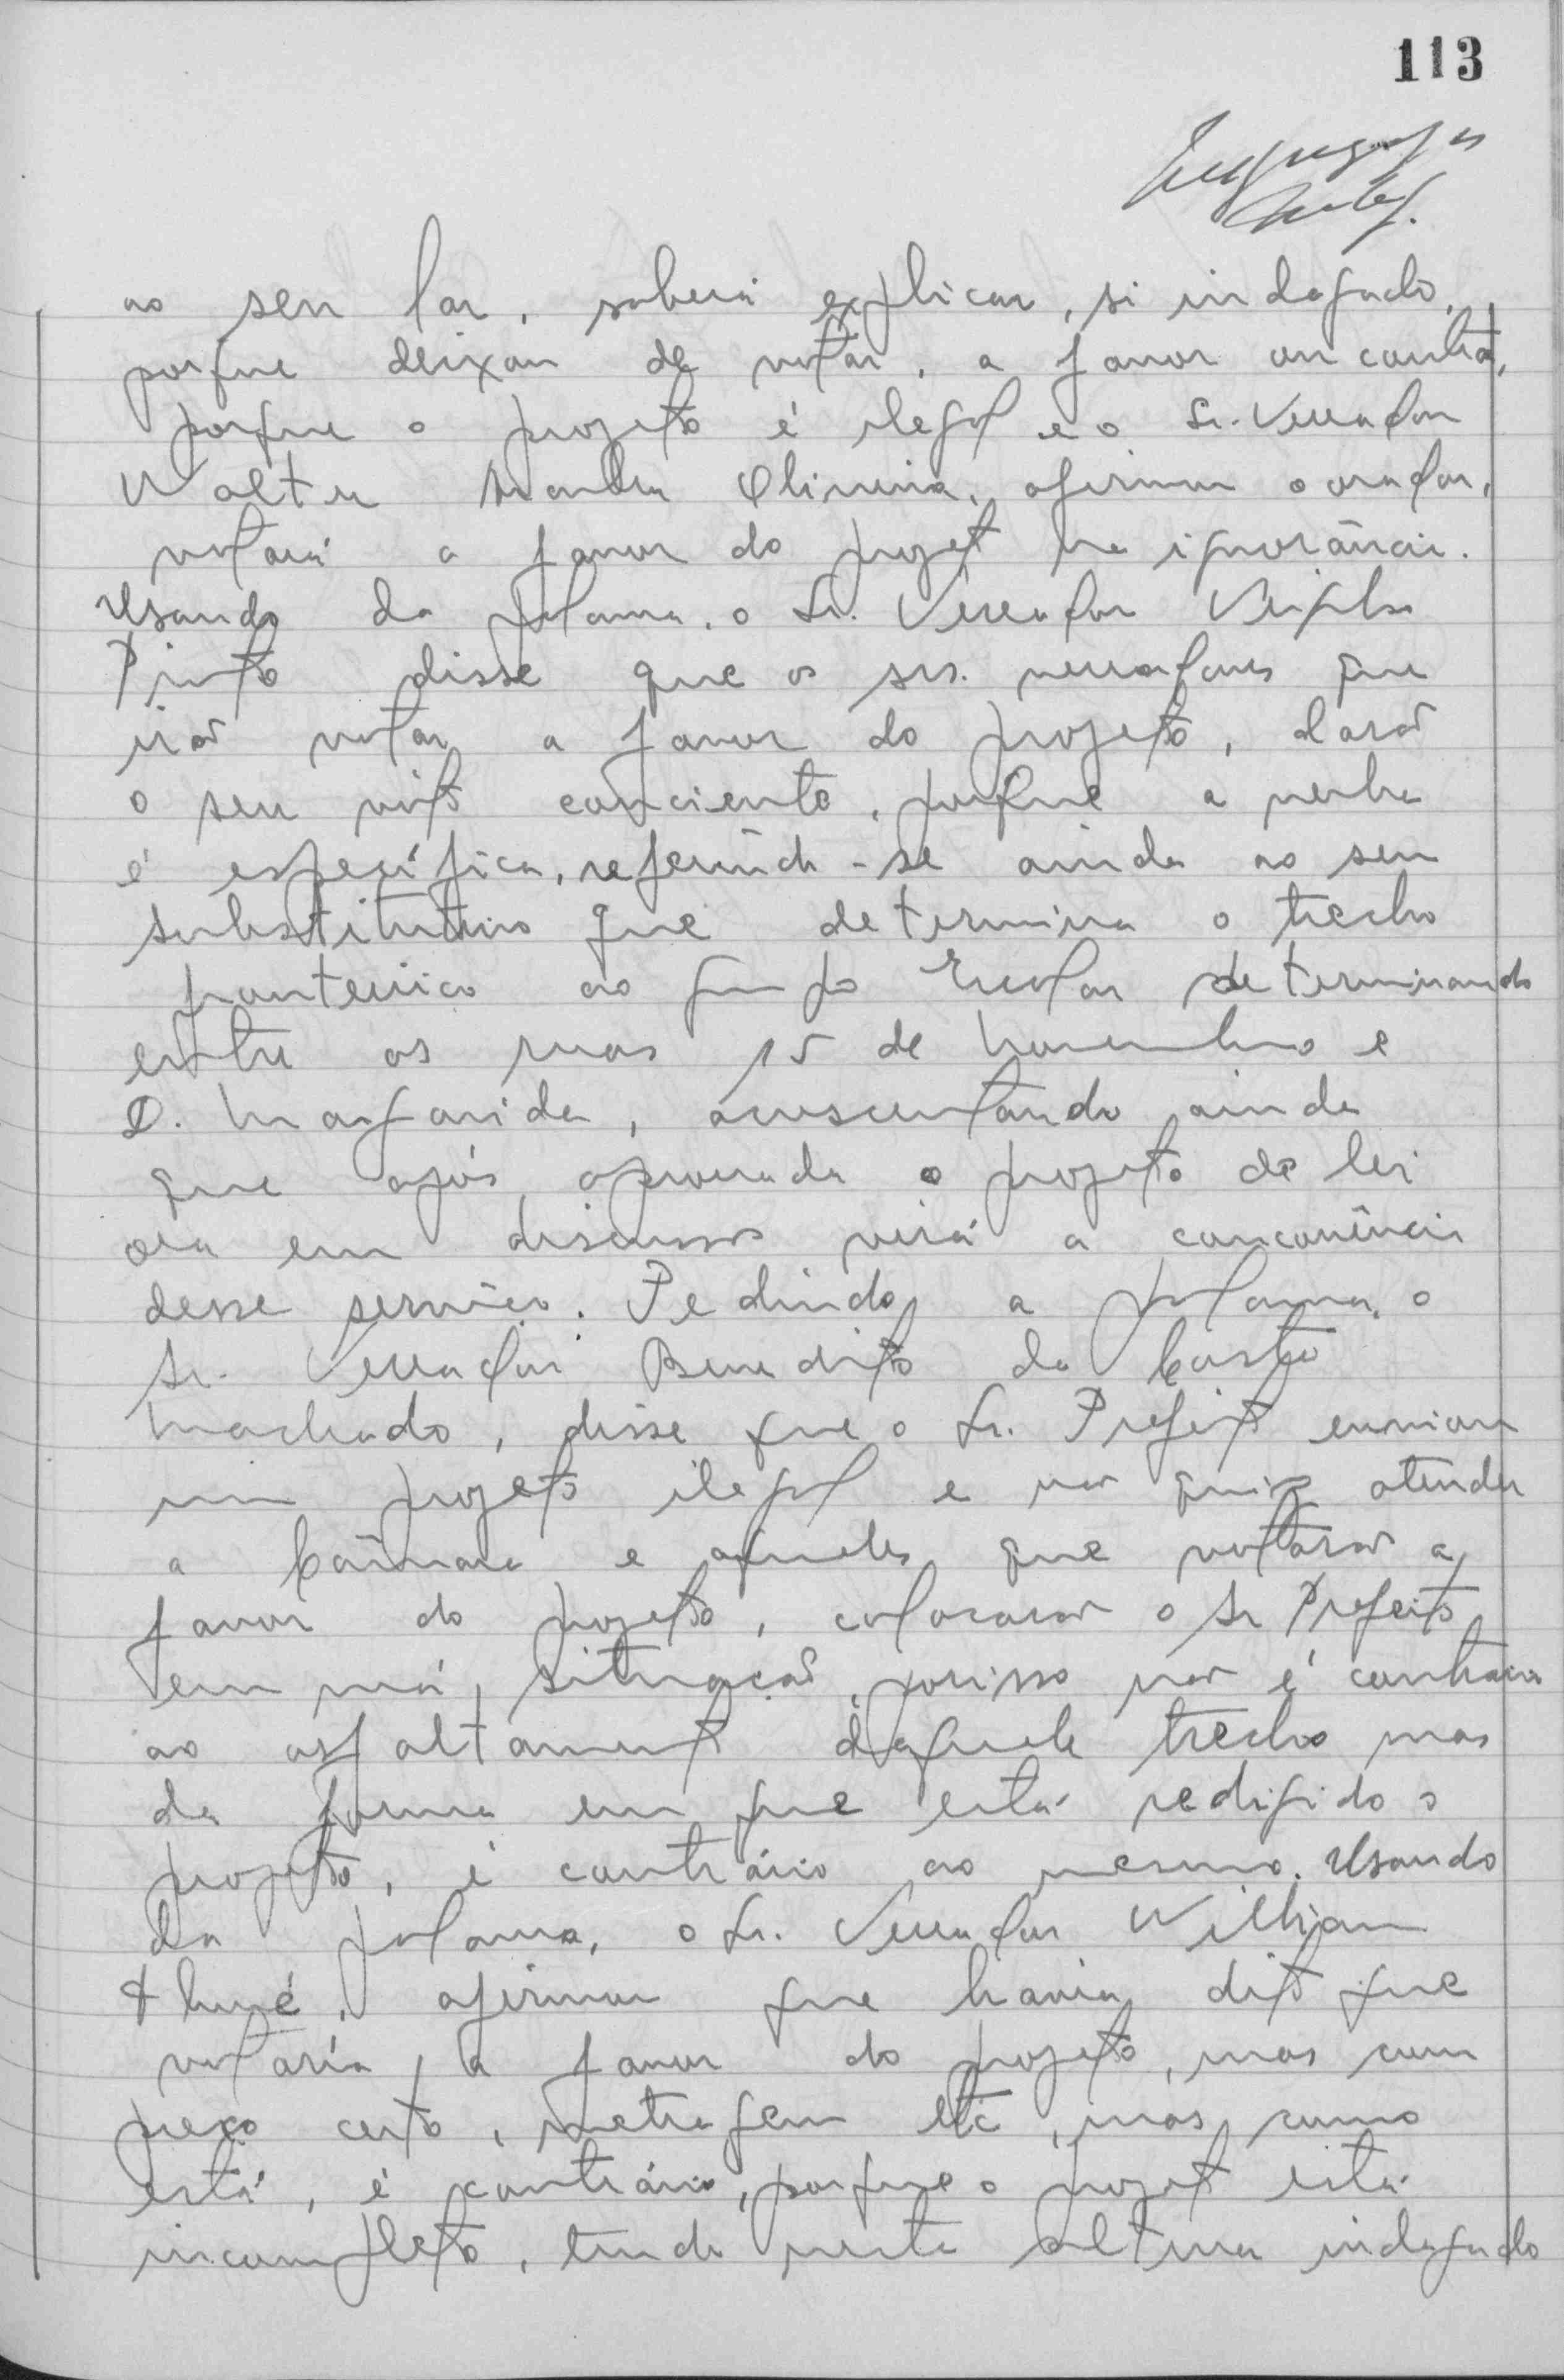 113
ao seu lar, saberá explicar, si indagado,
porque deixou de votar, a favor ou contra,
porque o projeto é ilegal e o Sr. Vereador
Walter Oliveira, afirmou o orador,
votará a favor do projeto na ignorância.
Usando da palavra, o Sr. Vereador Virgilio
Pinto disse que os srs. vereadores que
irão votar a favor do projeto, darão
o seu voto conciente, porque a verba
é específica, referindo-se ainda ao seu
substitutivo que determina o trecho
fronteiriço ao Grupo Escolar determinando
entre as ruas 15 de Novembro e
D. Margarida, acrescentando ainda
que após aprovada o projeto de lei
ora em discussão virá a concorrência
desse serviço. Pedindo a palavra, o
Sr. Vereador Benedito de Castro
Machado, disse que o Sr. Prefeito enviou
um projeto ilegal e não quiz atender
a Câmara e aqueles que votarão a
favor do projeto, colocarão o Sr Prefeito
em má situação, porisso não é contrário
ao asfaltamento daquele trecho mas
da forma em que está redigido o
projeto, é contrário ao mesmo. Usando
da palavra, o Sr. Vereador William
afirmou que havia dito que
votaría a favor do projeto, mas com
preço certo, metragem etc, mas como
está, é contrário, porque o projeto está
incompleto, tendo nesta altura indagado